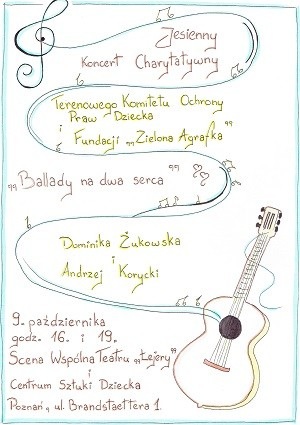 Jesienny
Koncert Charytatywny
Terenowego Komitetu Ochrony
Praw Dziecka
i
Fundacji „Zielona Agrafka"
„Ballady na dwa serca"
Dominika Żukowska
i
Andrzej Korycki
9. października
godz. 16. i 19.
Scena Wspólna Teatru „Łejery"
i
Centrum Sztuki Dziecka
Poznań, ul. Brandstaettera 1.